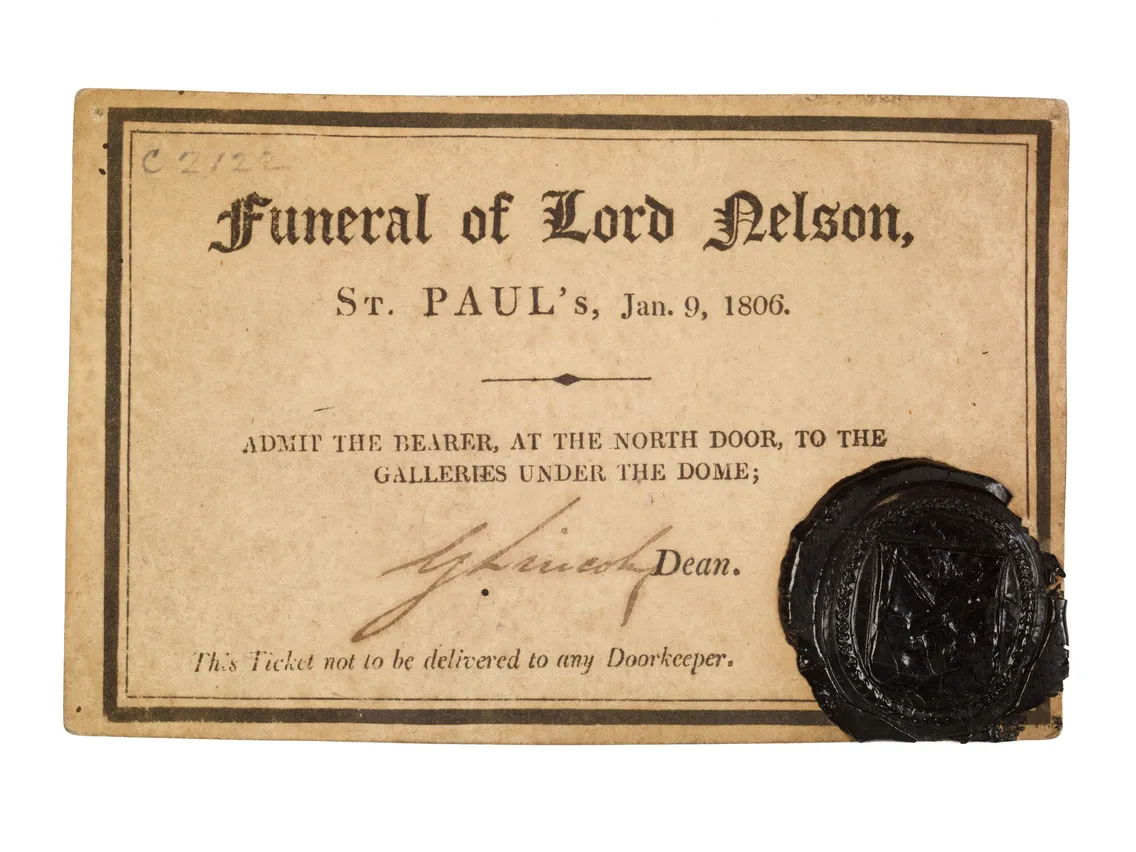 C 2122
Funeral of Lord Nelson,
St. PAUL's, Jan. 9, 1806.
ADMIT THE BEARER, AT THE NORTH DOOR, TO THE
GALLERIES UNDER THE DOME;
G Lincoln Dean.
This Ticket not to be delivered to any Doorkeeper.